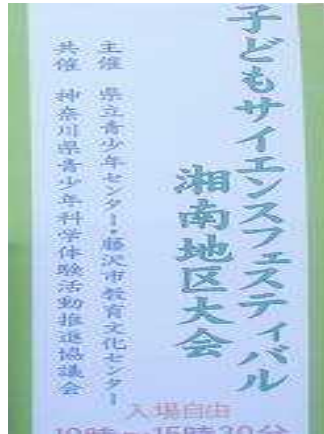 子どもサイエンスフェスティバル
湘南地区大会
主催 県立青少年センター・藤沢市教育文化センター
共催 神奈川県青少年科学体験活動推進協議会
入場自由
10時～15時30分